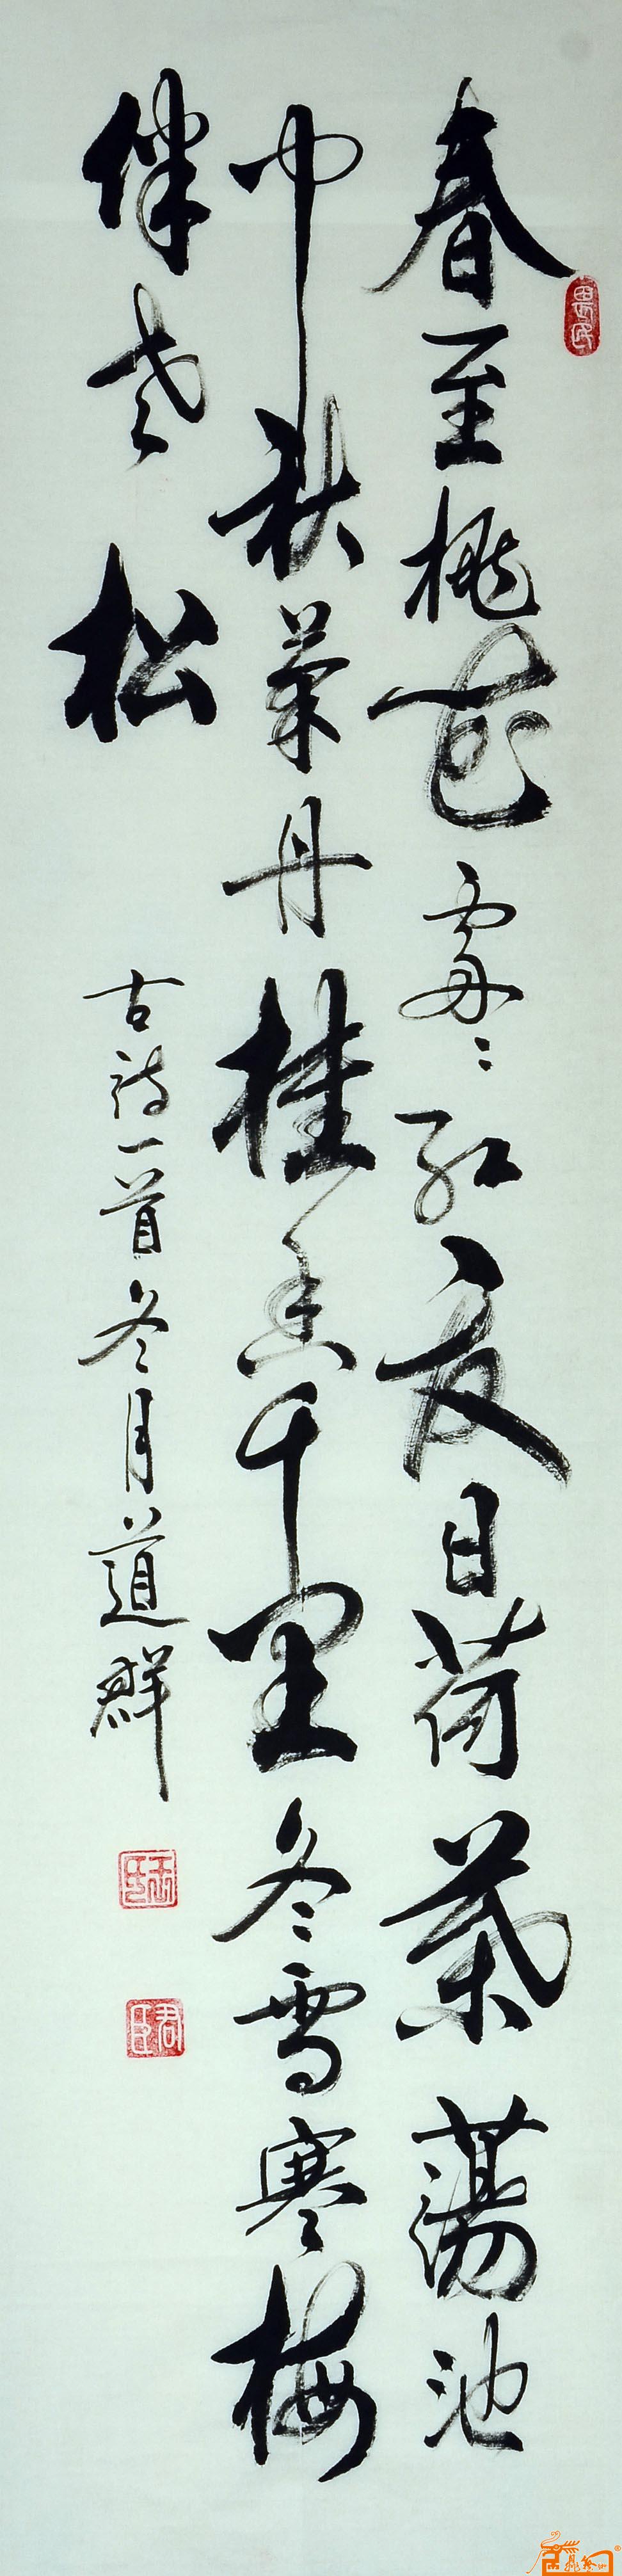 春至桃花處〻红夏日荷葉蕩池
中秋菊丹桂香千里冬雪寒梅
伴老松
古诗一首冬月道群